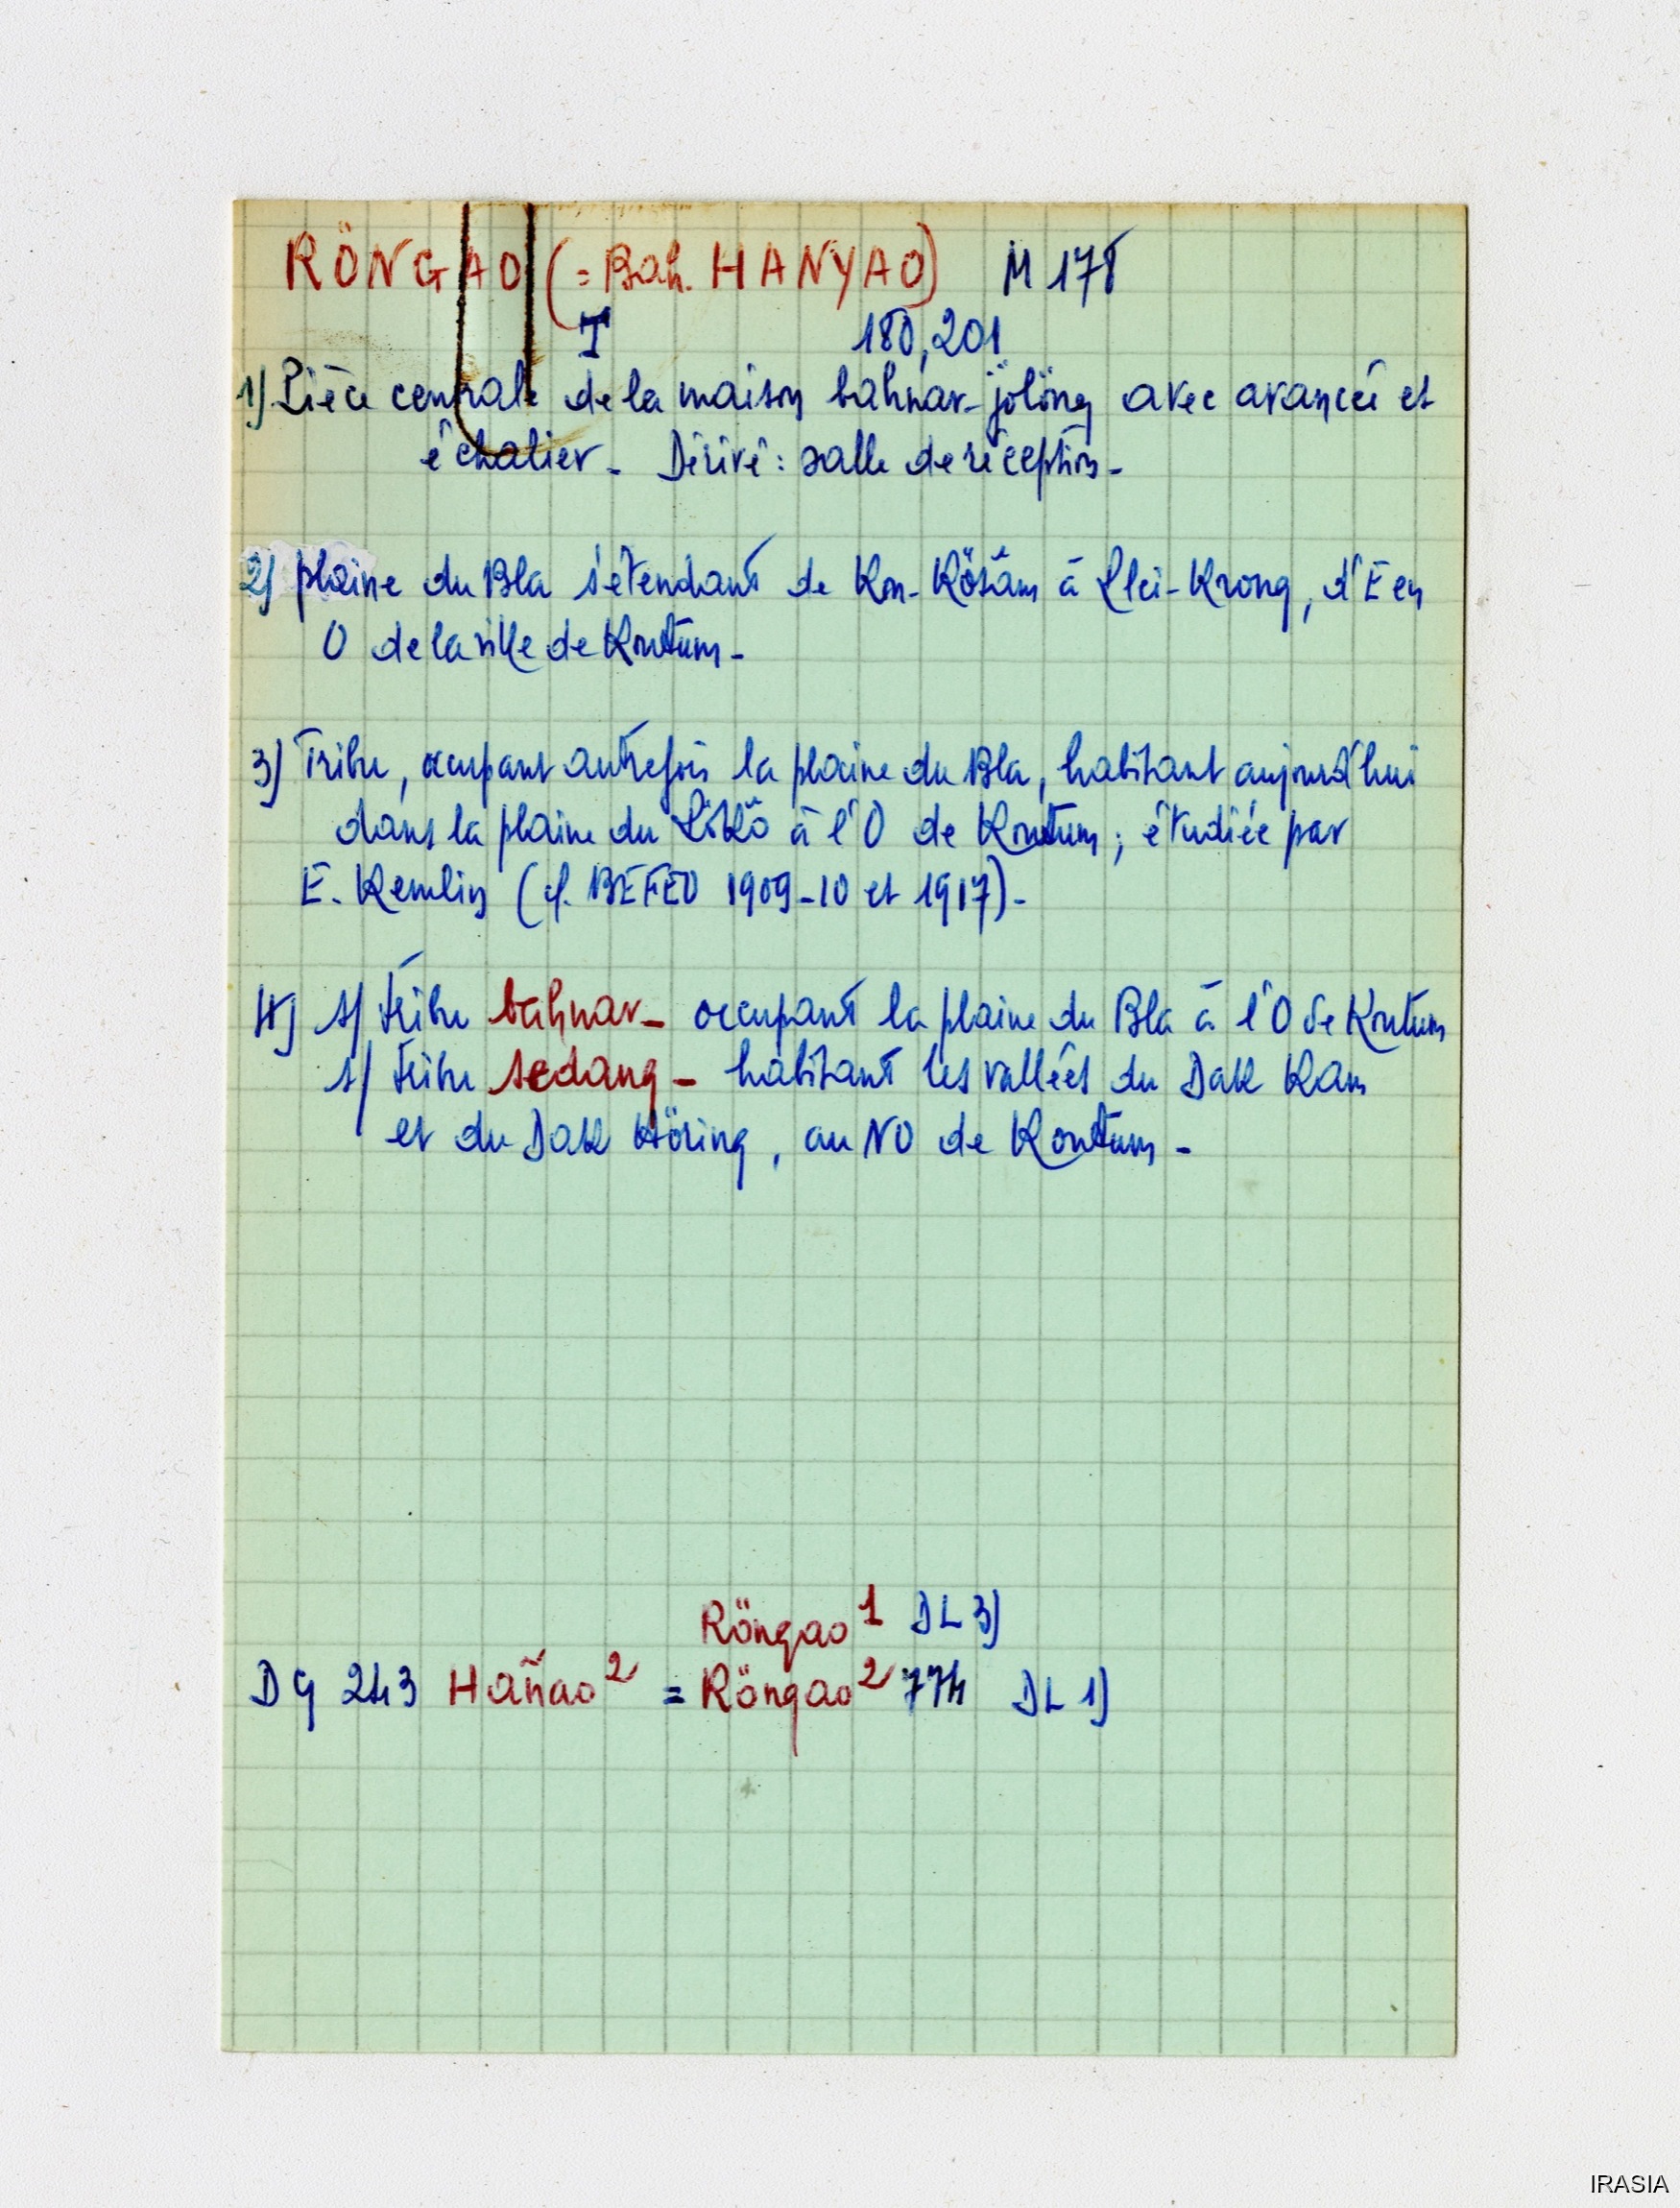 RÖNGAO (= Bah. HANYAO) M 178
I 180, 201
1) Pièce centrale de la maison bahnar-jölöng avec avancée et
échalier - Dérivé : salle de réception -
2) plaine du Bla s'étendant de Kon-Köxâm à Plei-Krong, d'E en
O de la ville de Kontum -
3) Tribu, occupant autrefois la plaine du Bla, habitant aujourd'hui
dans la plaine du à l'O de Kontum ; étudiée par
E. Kemlin (cf. BEFEO 1909-10 et 1917) -
4) s/ tribu bahnar - occupant la plaine du Bla à l'O de Kontum
s/ tribu sedang - habitant les vallées du Dak Kam
et du Dak Höring, au NO de Kontum -
Röngao 1 DL 3)
DG 243 Hañao 2 = Röngao 2 774 DL 1)
IRASIA